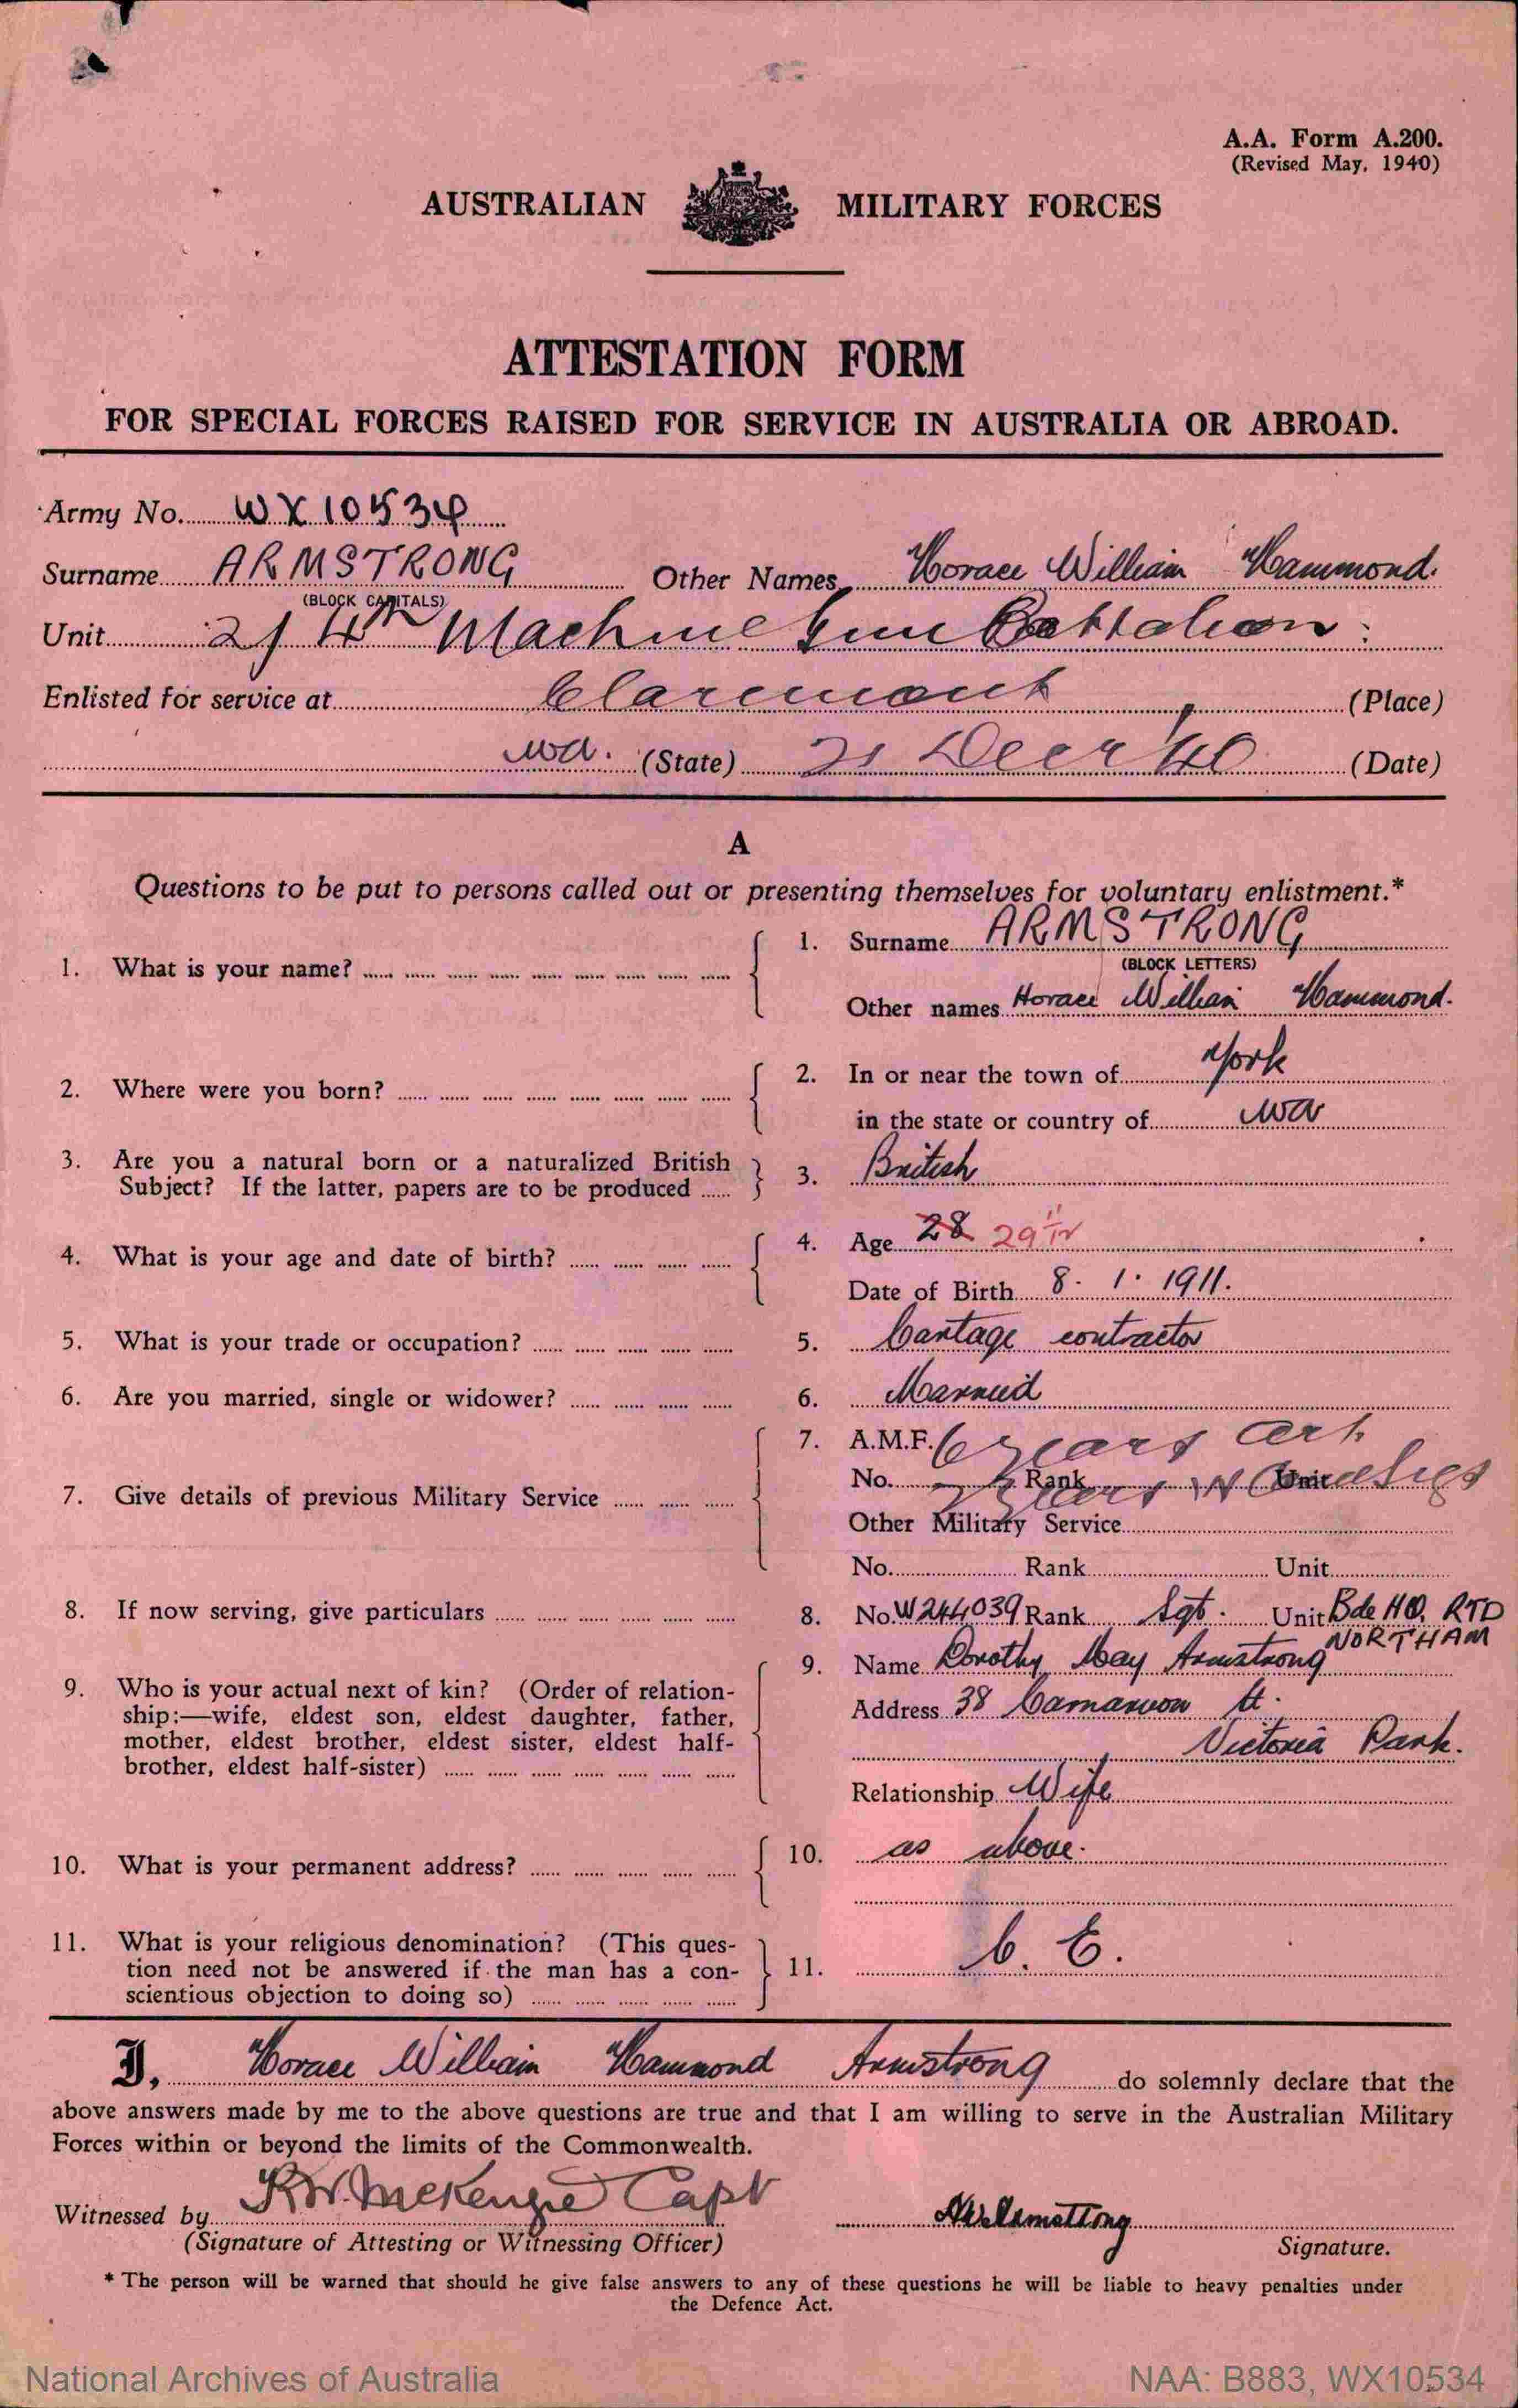 A.A. Form A.200.
(Revised May, 1940)
AUSTRALIAN MILITARY FORCES
ATTESTATION FORM
FOR SPECIAL FORCES RAISED FOR SERVICE IN AUSTRALIA OR ABROAD.
Army No. WX10534
Surname ARMSTRONG Other Names Horace William Hammond.
(BLOCK CAPITALS)
Unit 2/4th Machine Gun Battalion.
Enlisted for service at Claremont (Place)
WA. (State) 21 Decr 40 (Date)
A
Questions to be put to persons called out or presenting themselves for voluntary enlistment.*
1. What is your name? 1. Surname ARMSTRONG
(BLOCK LETTERS)
Other names Horace William Hammond.
2. Where were you born? 2. In or near the town of York
in the state or country of WA
3. Are you a natural born or a naturalized British
Subject? If the latter, papers are to be produced 3. British
4. What is your age and date of birth? 4. Age 28 29 11/12
Date of Birth 8. 1. 1911.
5. What is your trade or occupation? 5. Cartage contractor
6. Are you married, single or widower? 6. Married
7. Give details of previous Military Service 7. A.M.F. 6 years
No. Rank years Unit
Other Military Service
No. Rank Unit
8. If now serving, give particulars 8. No. W244039 Rank Sgt. Unit Bde HQ. RTD
NORTHAM
9. Who is your actual next of kin? (Order of relation-
ship:—wife, eldest son, eldest daughter, father,
mother, eldest brother, eldest sister, eldest half-
brother, eldest half-sister)
9. Name Dorothy May Armstrong
Address 38 Carnarvon St.
Victoria Park.
Relationship Wife
10. What is your permanent address? 10. as above.
11. What is your religious denomination? (This ques-
tion need not be answered if the man has a con-
scientious objection to doing so) 11. C. E.
I, Horace William Hammond Armstrong do solemnly declare that the
above answers made by me to the above questions are true and that I am willing to serve in the Australian Military
Forces within or beyond the limits of the Commonwealth.
Witnessed by McKenzie Capt HWArmstrong
(Signature of Attesting or Witnessing Officer) Signature.
* The person will be warned that should he give false answers to any of these questions he will be liable to heavy penalties under
the Defence Act.
National Archives of Australia NAA: B883, WX10534